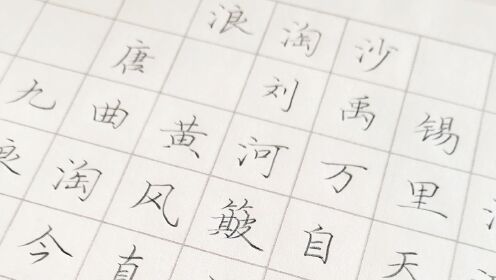 浪淘沙
唐 刘禹锡
九曲黄河万里
淘风簸自天
今直